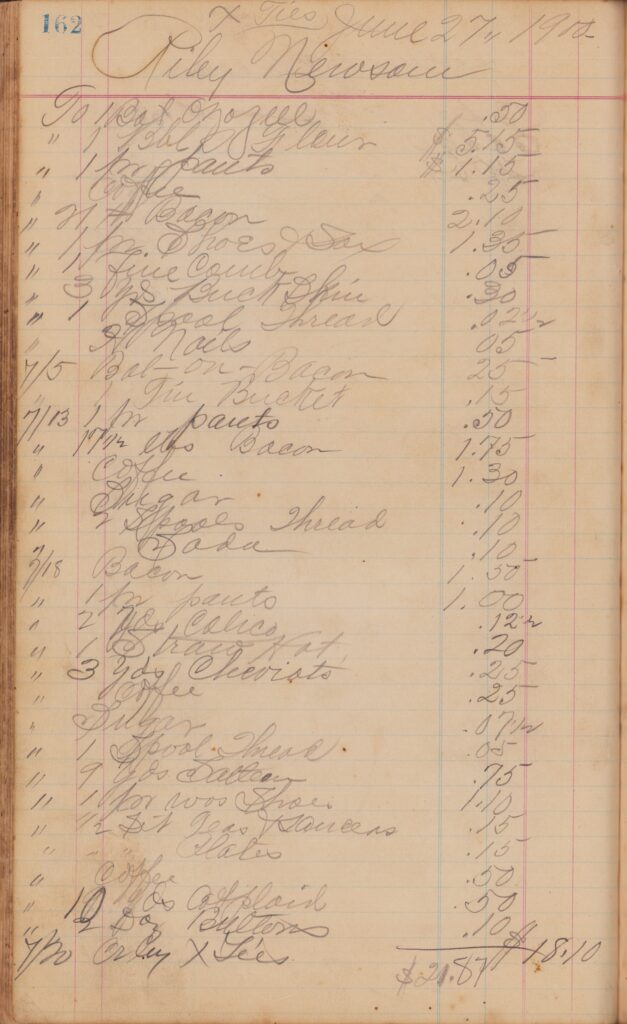 162
X Ties June 27, 190
Riley Newsom
To 1 Box .50
" 1 Bbl Flour $ 5.15
" 1 pr pants $ 1.15
" Coffee .25
" 21 # Bacon 2.10
" 1 pr. Shoes & Sox 1.35
" 1 fine Comb .05
" 3 yds Buck Skin .30
" 1 Spool Thread .02 1/2
" Nails 05
7/5 Bal- on- Bacon 25
" 1 Tin Bucket .15
7/13 1 pr pants .50
" 17 1/2 lbs Bacon 1.75
" Coffee 1.30
" Sugar .10
" 2 Spools Thread .10
" Soda .10
7/18 Bacon 1.50
" 1 pr pants 1.00
" 2 yds Calico .12 1/2
" 1 Straw Hat .20
" 3 yds Cheviots .25
" Coffee .25
" Sugar .07 1/2
" 1 Spool Thread .05
" 9 yds Satteen .75
" 1 pr wos Shoes 1.10
" 1/2 Set Teas & Saucers .15
" " " Plates .15
" Coffee .50
" 10 yds Cot plaid .50
" 2 Doz Buttons .10
7/20 Cr by X Ties $ 18.10
$21.87